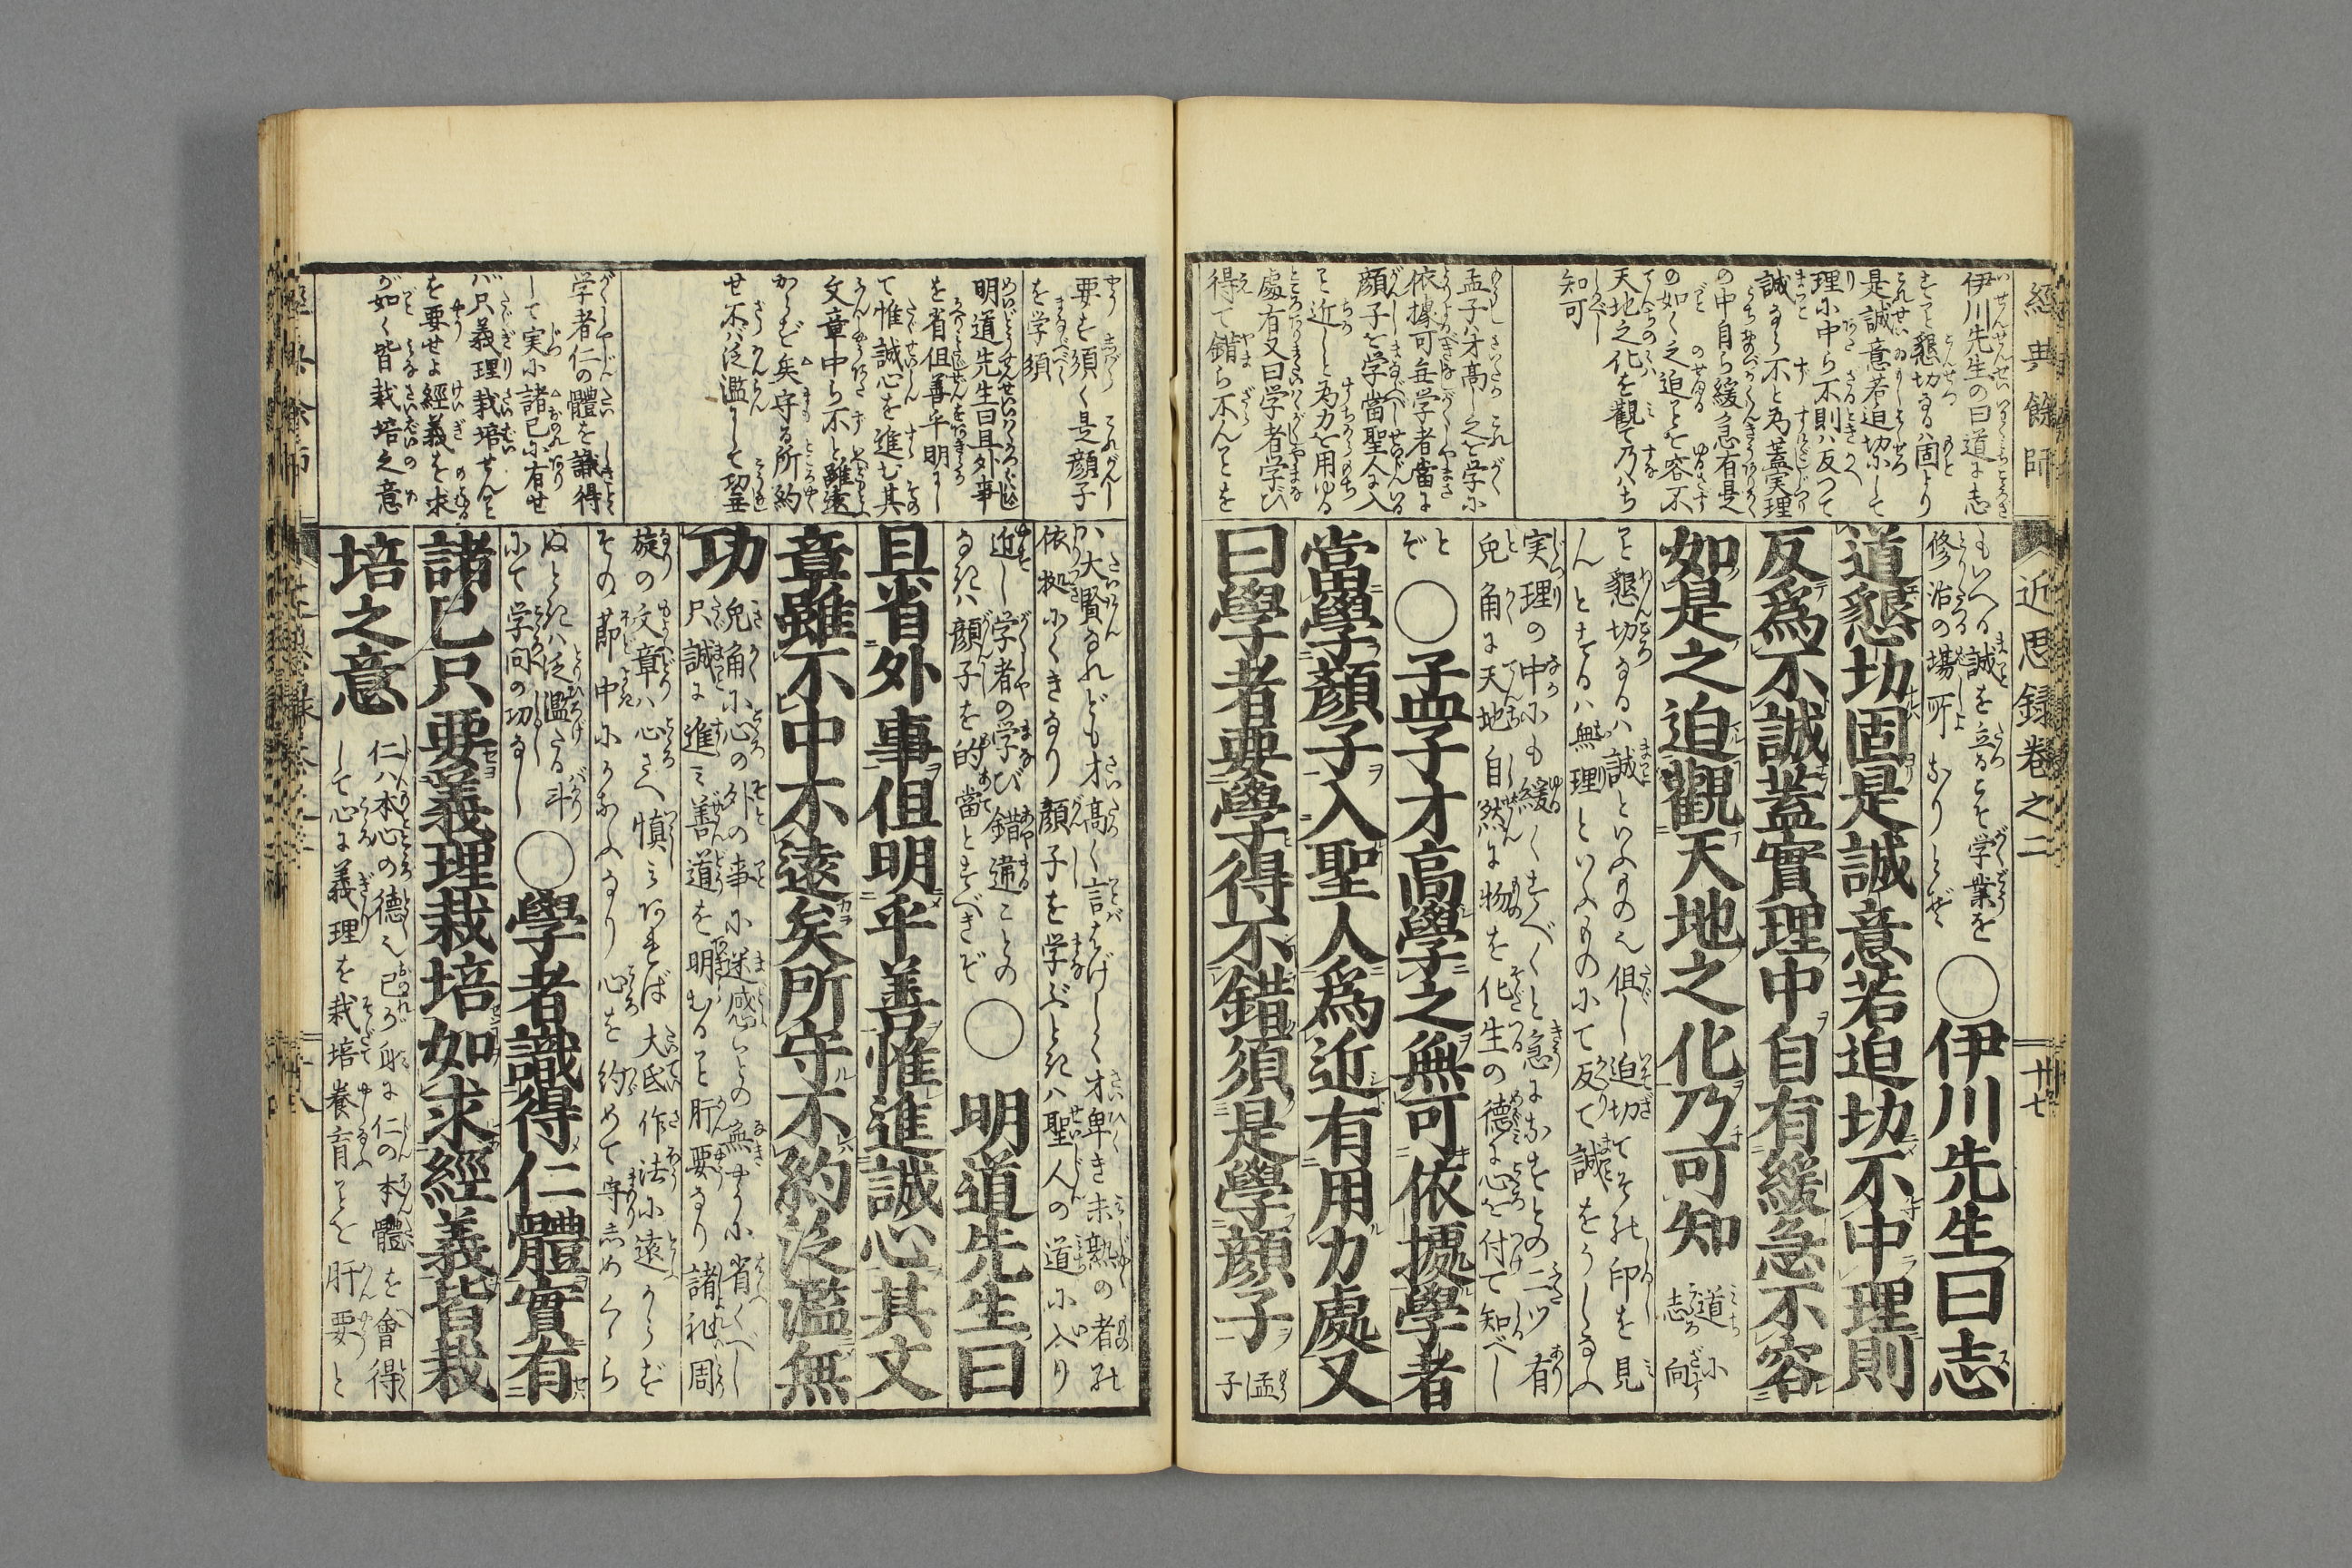 經典餘師
近思録巻之二
廿七
伊川先生の曰道に志
すこと懇切なるハ固より
是誠意若迫切にして
理に中ら不則ハ反つて
誠なら不と為蓋実理
の中自ら緩急有是
の如く之迫ことを容不
天地之化を觀て乃ハち
知可
孟子ハ才高し之を学に
依據可無学者當に
顔子を学當聖人に入
に近しと為力を用ゆる
處有又曰学者学び
得て錯ら不んことを
もいへる誠を立ることを学業を
修治の場所なりとぞ
〇伊川先生曰志
道懇切固是誠意若迫切不中理則
反爲不誠蓋實理中自有緩急不容
如是之迫觀天地之化乃可知
道に
志向
こと懇切なるハ誠といふもの也但し迫切てそれ印を見
んとするハ無理といふものにて反て誠をうしなふ
実理の中にも緩くすべくと急になすとの二ツ有
兎角に天地自然に物を化生の德に心を付て知べし
とぞ
〇孟子才高學之無可依據學者
當學顏子入聖人爲近有用力處又
曰學者要學得不錯須是學顔子
孟子
要す須く是顔子
を学須
明道先生曰且外事
を省但善乎明にし
て惟誠心を進む其
文章中ら不と雖遠
からず矣守る所約
せ不ハ泛濫にして功無
学者仁の體を識得
して実に諸己に有せ
バ只義理栽培せんと
を要せよ經義を求
が如く皆栽培之意
ハ大賢なれども才高く言はげしく才卑き未熟の者れ
依拠にくきなり顔子を学ぶときハ聖人の道に入り
近し学者の学び錯遌ことの
なきハ顔子を的當とすべきぞ
〇明道先生曰
且省外事但明乎善惟進誠心其文
章雖不中不遠矣所守不約泛濫無
功
兎角に心の外の事に迷惑いとの無やうに省くべし
只誠に進ミ善道を明むるを肝要なり諸礼周
旋の文章ハ心さへ慎ミあれば大底作法に遠からず
その節中にかなふなり心を約めて守しめくくら
ぬときハ泛濫たる斗
にて学问の功なし
〇學者識得仁體實有
諸己只要義理栽培如求經義皆栽
培之意
仁ハ本心の德也己が身に仁の本體を會得
して心に義理を栽培養育ことを肝要と